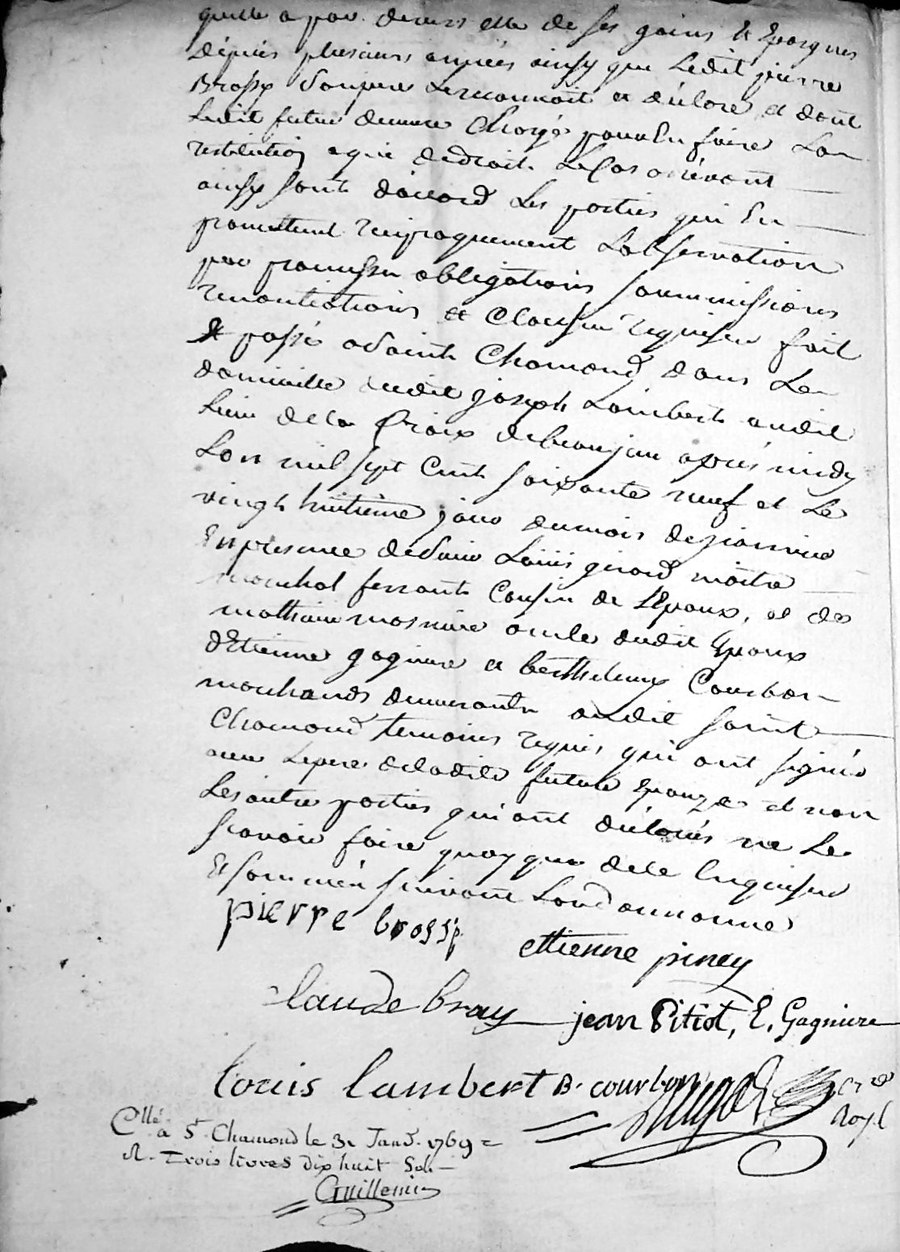 quelle a par devers elle de ses gains et Epargnes
depuis plusieurs années ainsy que Ledit pierre
Brossy Son pere Le reconnoit et déclare, et dont
Ledit futur demeure Chargé pour En faire La
restitution a qui de droit Le Cas arrivant
ainsy sont d'accord Les parties qui En
promettent reciproquement L'observation
par promesses obligations soummissions
renontiations et Clauses requises fait
et passé a Saint Chamond dans Le
domicille dudit joseph Lambert audit
Lieu de la Croix de beaujeu après midy
L'an mil sept Cent soixante neuf et Le
vingt huitieme jour du mois de janvier
En presence de Louis girard maitre
marechal ferrant Cousin de L'Epoux, et de
mathieu oncle dudit Epoux
d'Etienne gagniere et berthelemy Courbon
marchands demeurants audit saint
Chamond temoins requis qui ont signés
avec Le pere de ladite future Epouze et non
Les autres parties qui ont déclarés ne Le
scavoir faire quoy que de ce Enquises
Et sommés suivant L'ordonnance
pierre brossy
ettienne piney
Claude bray jean Pitiot, E. Gagniere
Louis lambert B. courbon
Roy.l
C.llé
a S.t Chamond le 31 Janv. 1769 =
R. Trois livres dix huit Sols
Guillemin